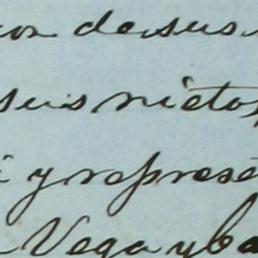 con de sus
sus nietos
y represe
Vega y ba